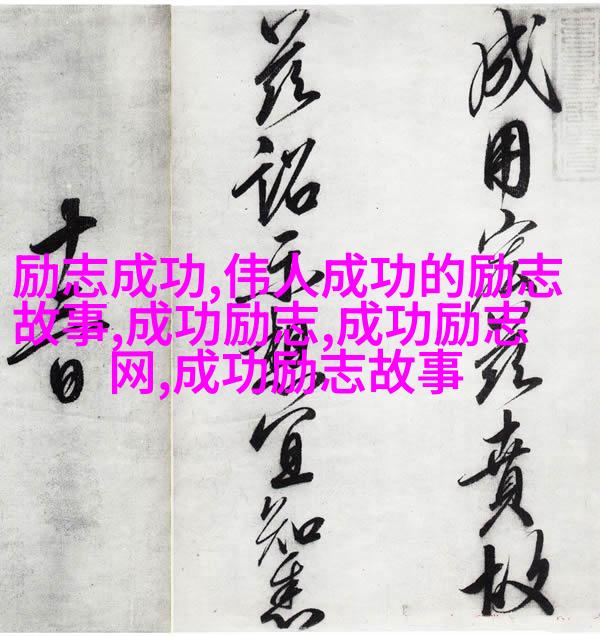 励志成功,伟人成功的励志
故事,成功励志,成功励志
网,成功励志故事
成用宏茲賁故
茲詔示想宜知悉
十五日